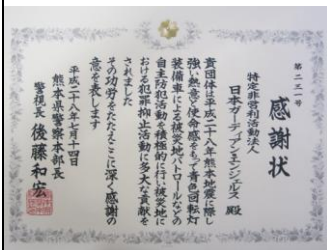 第二三一号
感謝状
特定非営利活動法人
日本ガーディアン・エンジェルス殿
貴団体は平成二十八年熊本地震に際し
強い熱意と使命感をもって青色回転灯
装備車による被災地パトロールなどの
自主防犯活動を積極的に行い被災地に
おける犯罪抑止活動に多大な貢献を
されました
その功労をたたえここに深く感謝の
意を表します
平成二十八年七月十四日
熊本県警察本部長
警視長 後藤和宏